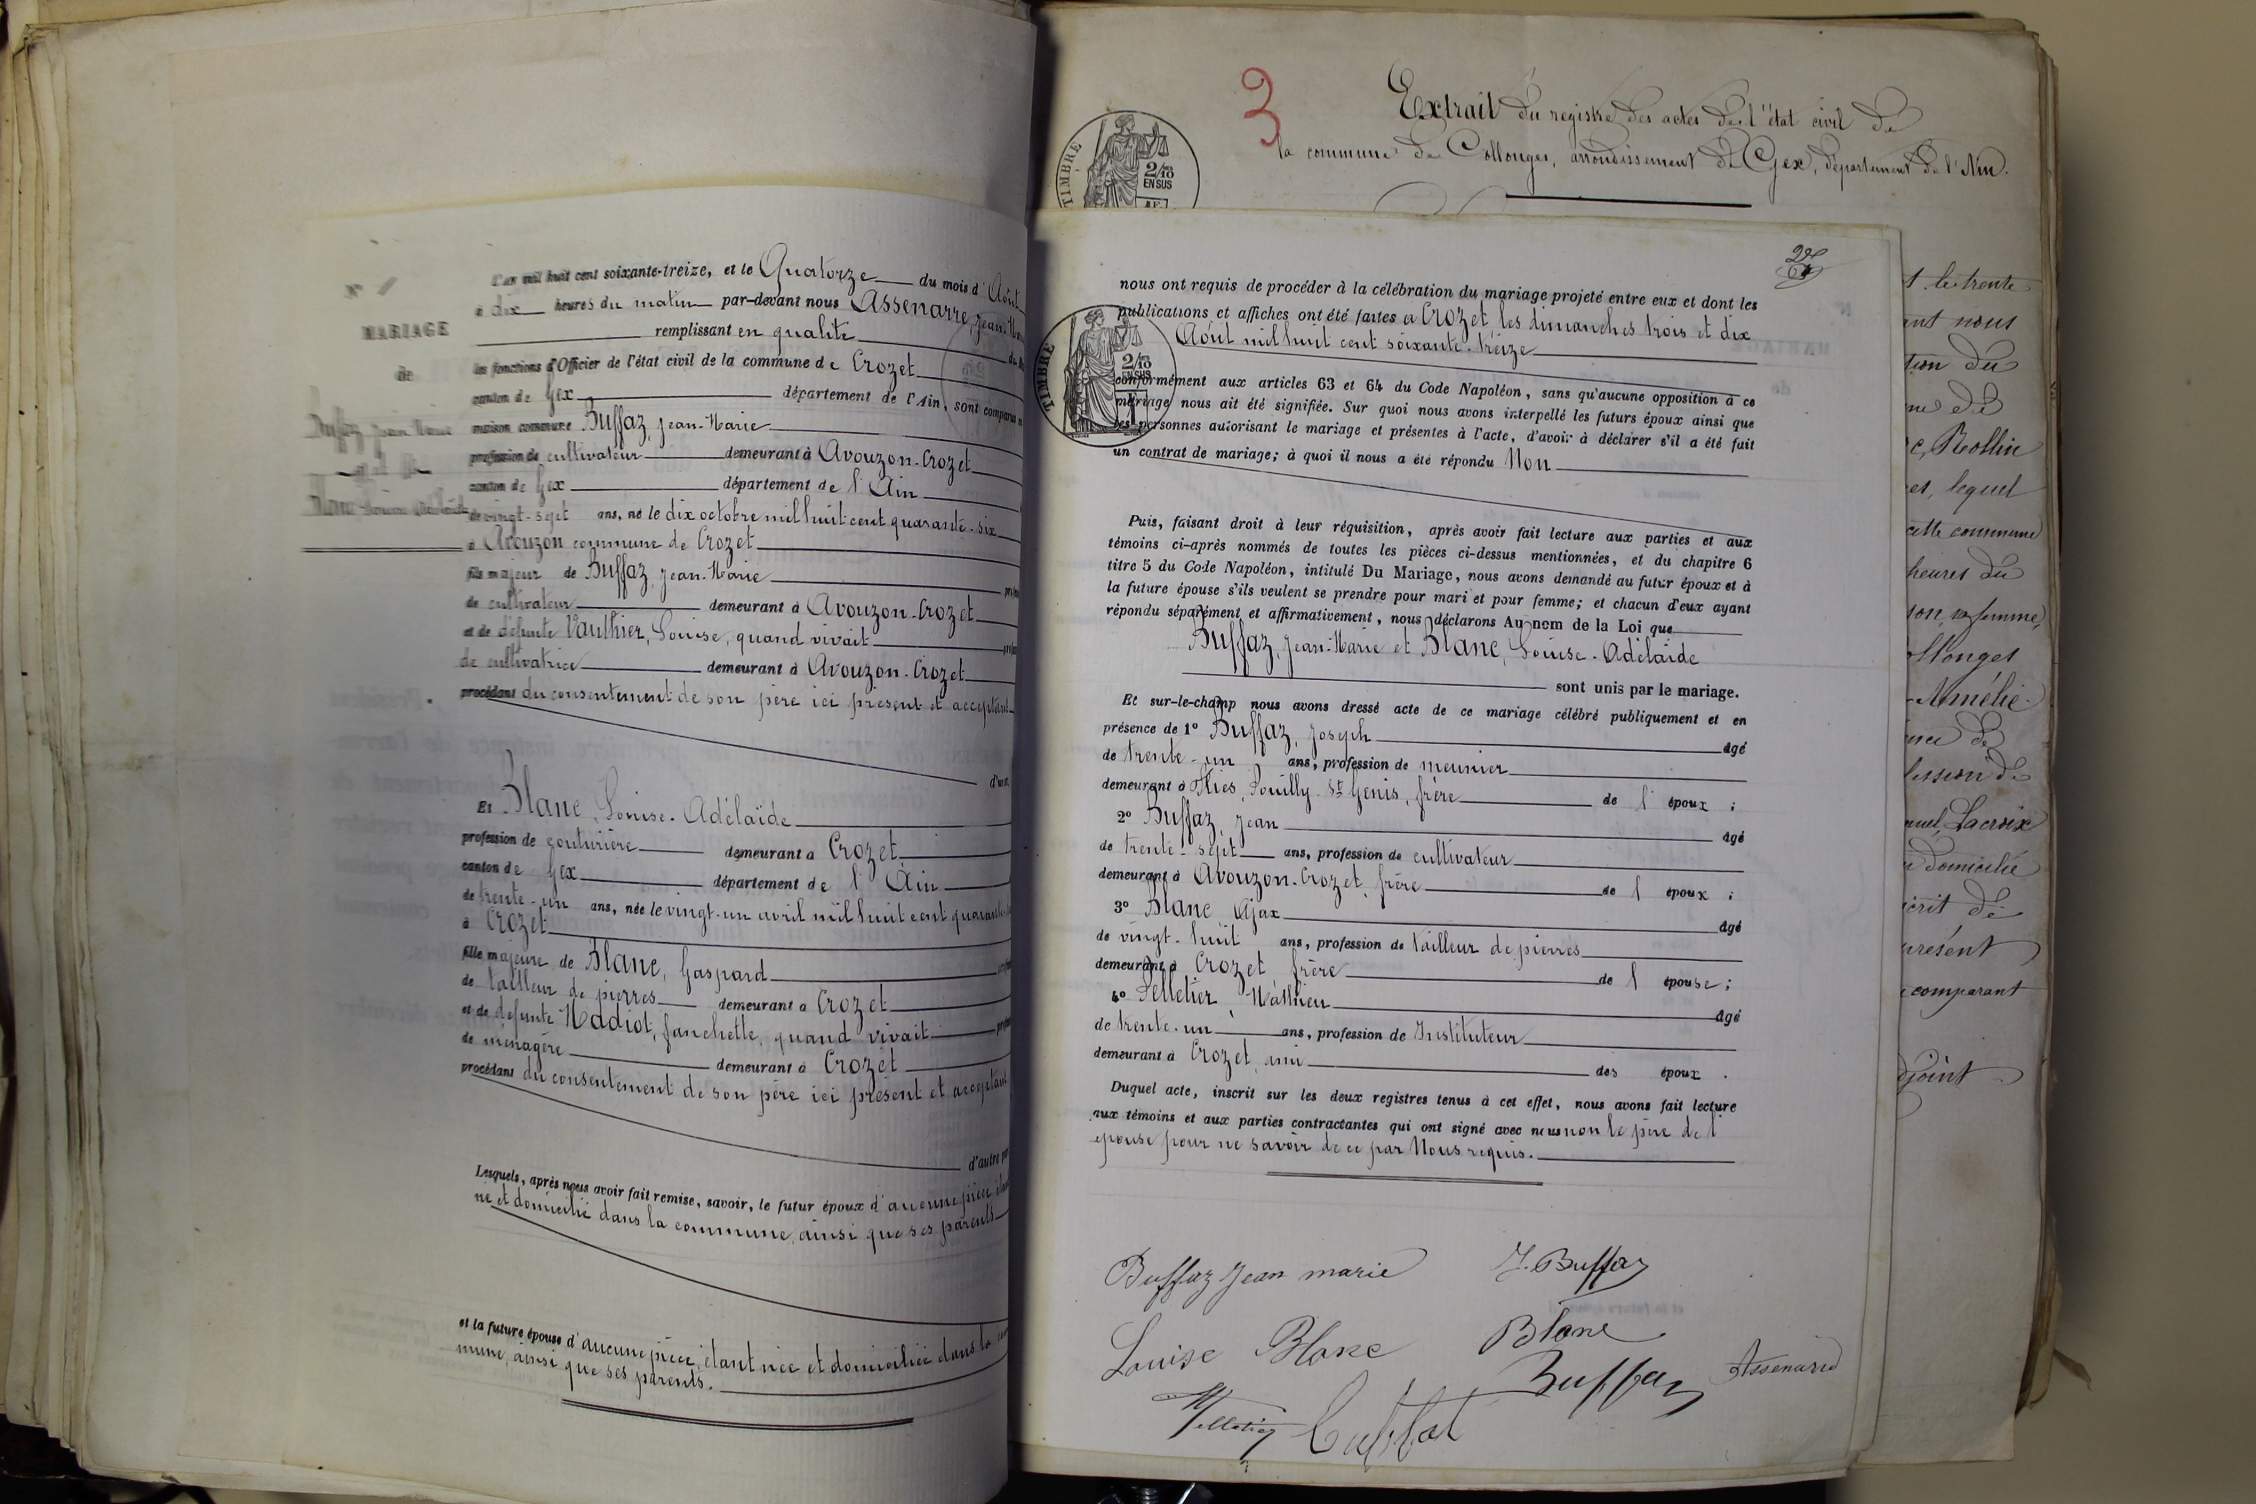 N° 1
MARIAGE
de
Buffaz Jean Marie
et de
Blanc Louise Adélaïde
L'an mil huit cent soixante-treize, et le Quatorze du mois d'Août
à dix heures du matin par-devant nous Assenarre, Jean
remplissant en qualité
les fonctions d'Officier de l'état civil de la commune de Crozet
canton de Gex département de l'Ain, sont comparus
maison commune Buffaz, Jean-Marie
profession de cultivateur demeurant à Avouzon-Crozet
canton de Gex département de l'Ain
de vingt-sept ans, né le dix octobre mil huit cent quarante-six
à Avouzon commune de Crozet
fils majeur de Buffaz, Jean-Marie
de cultivateur demeurant à Avouzon-Crozet
et de défunte Vauthier, Louise, quand vivait
de cultivatrice demeurant à Avouzon-Crozet
procédant du consentement de son père ici présent et acceptant
d'une
Et Blanc, Louise-Adélaïde
profession de couturière demeurant à Crozet
canton de Gex département de l'Ain
de trente-un ans, née le vingt-un avril mil huit cent
à Crozet
fille majeure de Blanc, Gaspard
de tailleur de pierres demeurant à Crozet
et de défunte Nadiot, fanchette, quand vivait
de ménagère demeurant à Crozet
procédant du consentement de son père ici présent et acceptant
d'autre
Lesquels, après nous avoir fait remise, savoir, le futur époux d'aucune pièce
né et domicilié dans la commune, ainsi que ses parents
et la future épouse d'aucune pièce, étant née et domiciliée dans la
mune, ainsi que ses parents.
3
Extrait du registre des actes de l'état civil de
la commune de Collonges, arrondissement de Gex, département de l'Ain.
TIMBRE
2/10
EN SUS
nous ont requis de procéder à la célébration du mariage projeté entre eux et dont les
publications et affiches ont été faites à Crozet, les dimanches trois et dix
Août mil huit cent soixante-treize
TIMBRE
2/10
EN SUS
conformément aux articles 63 et 64 du Code Napoléon, sans qu'aucune opposition à ce
mariage nous ait été signifiée. Sur quoi nous avons interpellé les futurs époux ainsi que
les personnes autorisant le mariage et présentes à l'acte, d'avoir à déclarer s'il a été fait
un contrat de mariage; à quoi il nous a été répondu Non
Puis, faisant droit à leur réquisition, après avoir fait lecture aux parties et aux
témoins ci-après nommés de toutes les pièces ci-dessus mentionnées, et du chapitre 6
titre 5 du Code Napoléon, intitulé Du Mariage, nous avons demandé au futur époux et à
la future épouse s'ils veulent se prendre pour mari et pour femme; et chacun d'eux ayant
répondu séparément et affirmativement, nous déclarons Au nom de la Loi que
Buffaz, Jean-Marie et Blanc, Louise-Adélaïde
sont unis par le mariage.
Et sur-le-champ nous avons dressé acte de ce mariage célébré publiquement et en
présence de 1° Buffaz, Joseph âgé
de trente-un ans, profession de meunier
demeurant à Flies, Pouilly-St Genis, frère de l'époux;
2° Buffaz, Jean âgé
de trente-sept ans, profession de cultivateur
demeurant à Avouzon-Crozet, frère de l'époux;
3° Blanc Ajax âgé
de vingt-huit ans, profession de tailleur de pierres
demeurant à Crozet frère de l'épouse;
4° Pelletier Mathieu âgé
de trente-un ans, profession de Instituteur
demeurant à Crozet, ami des époux.
Duquel acte, inscrit sur les deux registres tenus à cet effet, nous avons fait lecture
aux témoins et aux parties contractantes qui ont signé avec nous non le père de l'
épouse pour ne savoir de ce par Nous requis.
Buffaz Jean marie
J. Buffaz
Louise Blanc
Blanc
Buffaz
Pelletier
le trente
nous
Rollin
lequel
cette commune
heures du
son, sa femme,
Collonges
Amélie
Lacroix
domicilié
présent
comparant